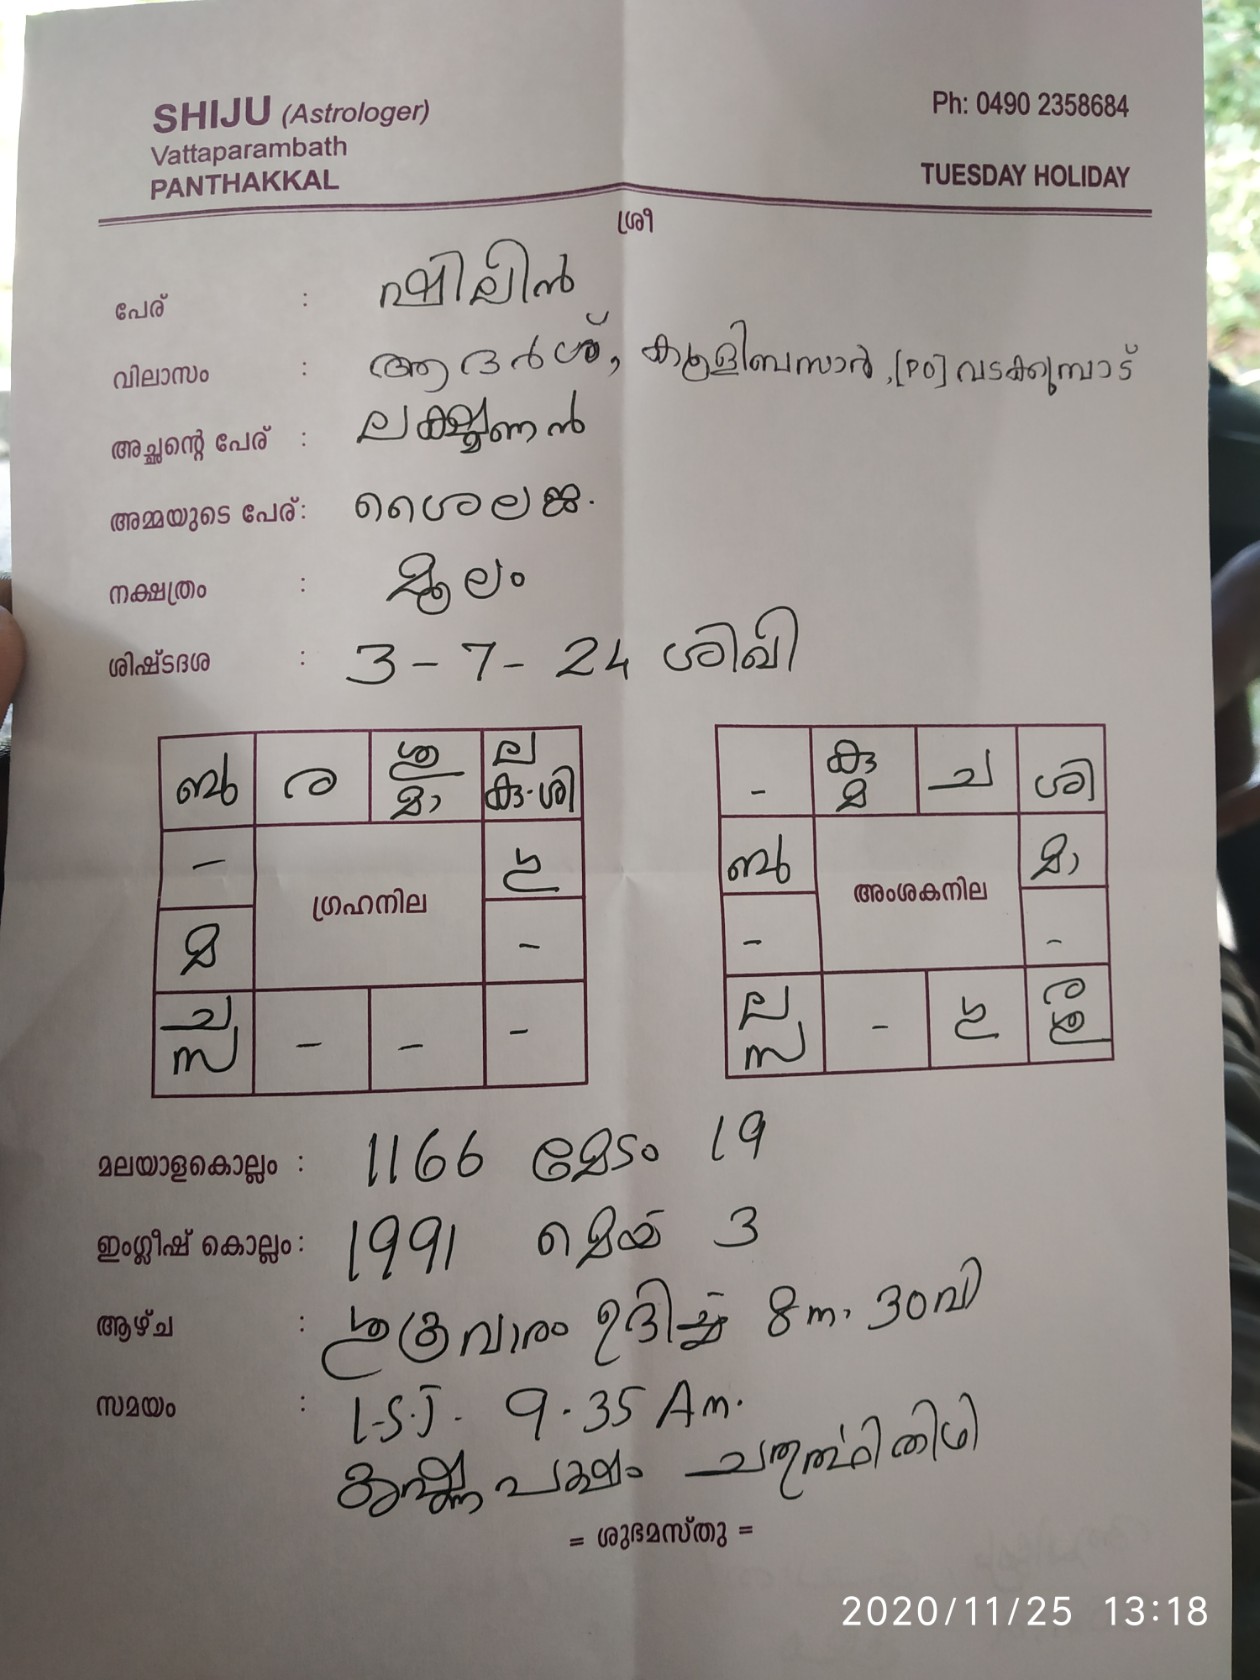 SHIJU (Astrologer)
Ph: 0490 2358684
Vattaparambath
PANTHAKKAL
TUESDAY HOLIDAY
ശ്രീ
പേര് : ഷിലിൻ
വിലാസം : ആദർശ്, കുളിബസാർ, [PO] വടക്കുമ്പാട്
അച്ഛന്റെ പേര് : ലക്ഷ്മണൻ
അമ്മയുടെ പേര് : ശൈലജ.
നക്ഷത്രം : മൂലം
ശിഷ്ടദശ : 3-7-24 ശിഖി
ബു ര ശു മാ ല കു·ശി
- കു മ ച ശി
- ഗ്രഹനില
ബു അംശകനില മാ
മ -
- -
ച സ - - -
ല സ - ര
മലയാളകൊല്ലം : 1166 മേടം 19
ഇംഗ്ലീഷ് കൊല്ലം : 1991 മെയ് 3
ആഴ്ച : ശുക്രവാരം ഉദിച്ച് 8 നാ. 30 വി
സമയം : I.S.T. 9.35 Am.
കൃഷ്ണ പക്ഷം ചതുർത്ഥി തിഥി
= ശുഭമസ്തു =
2020/11/25 13:18